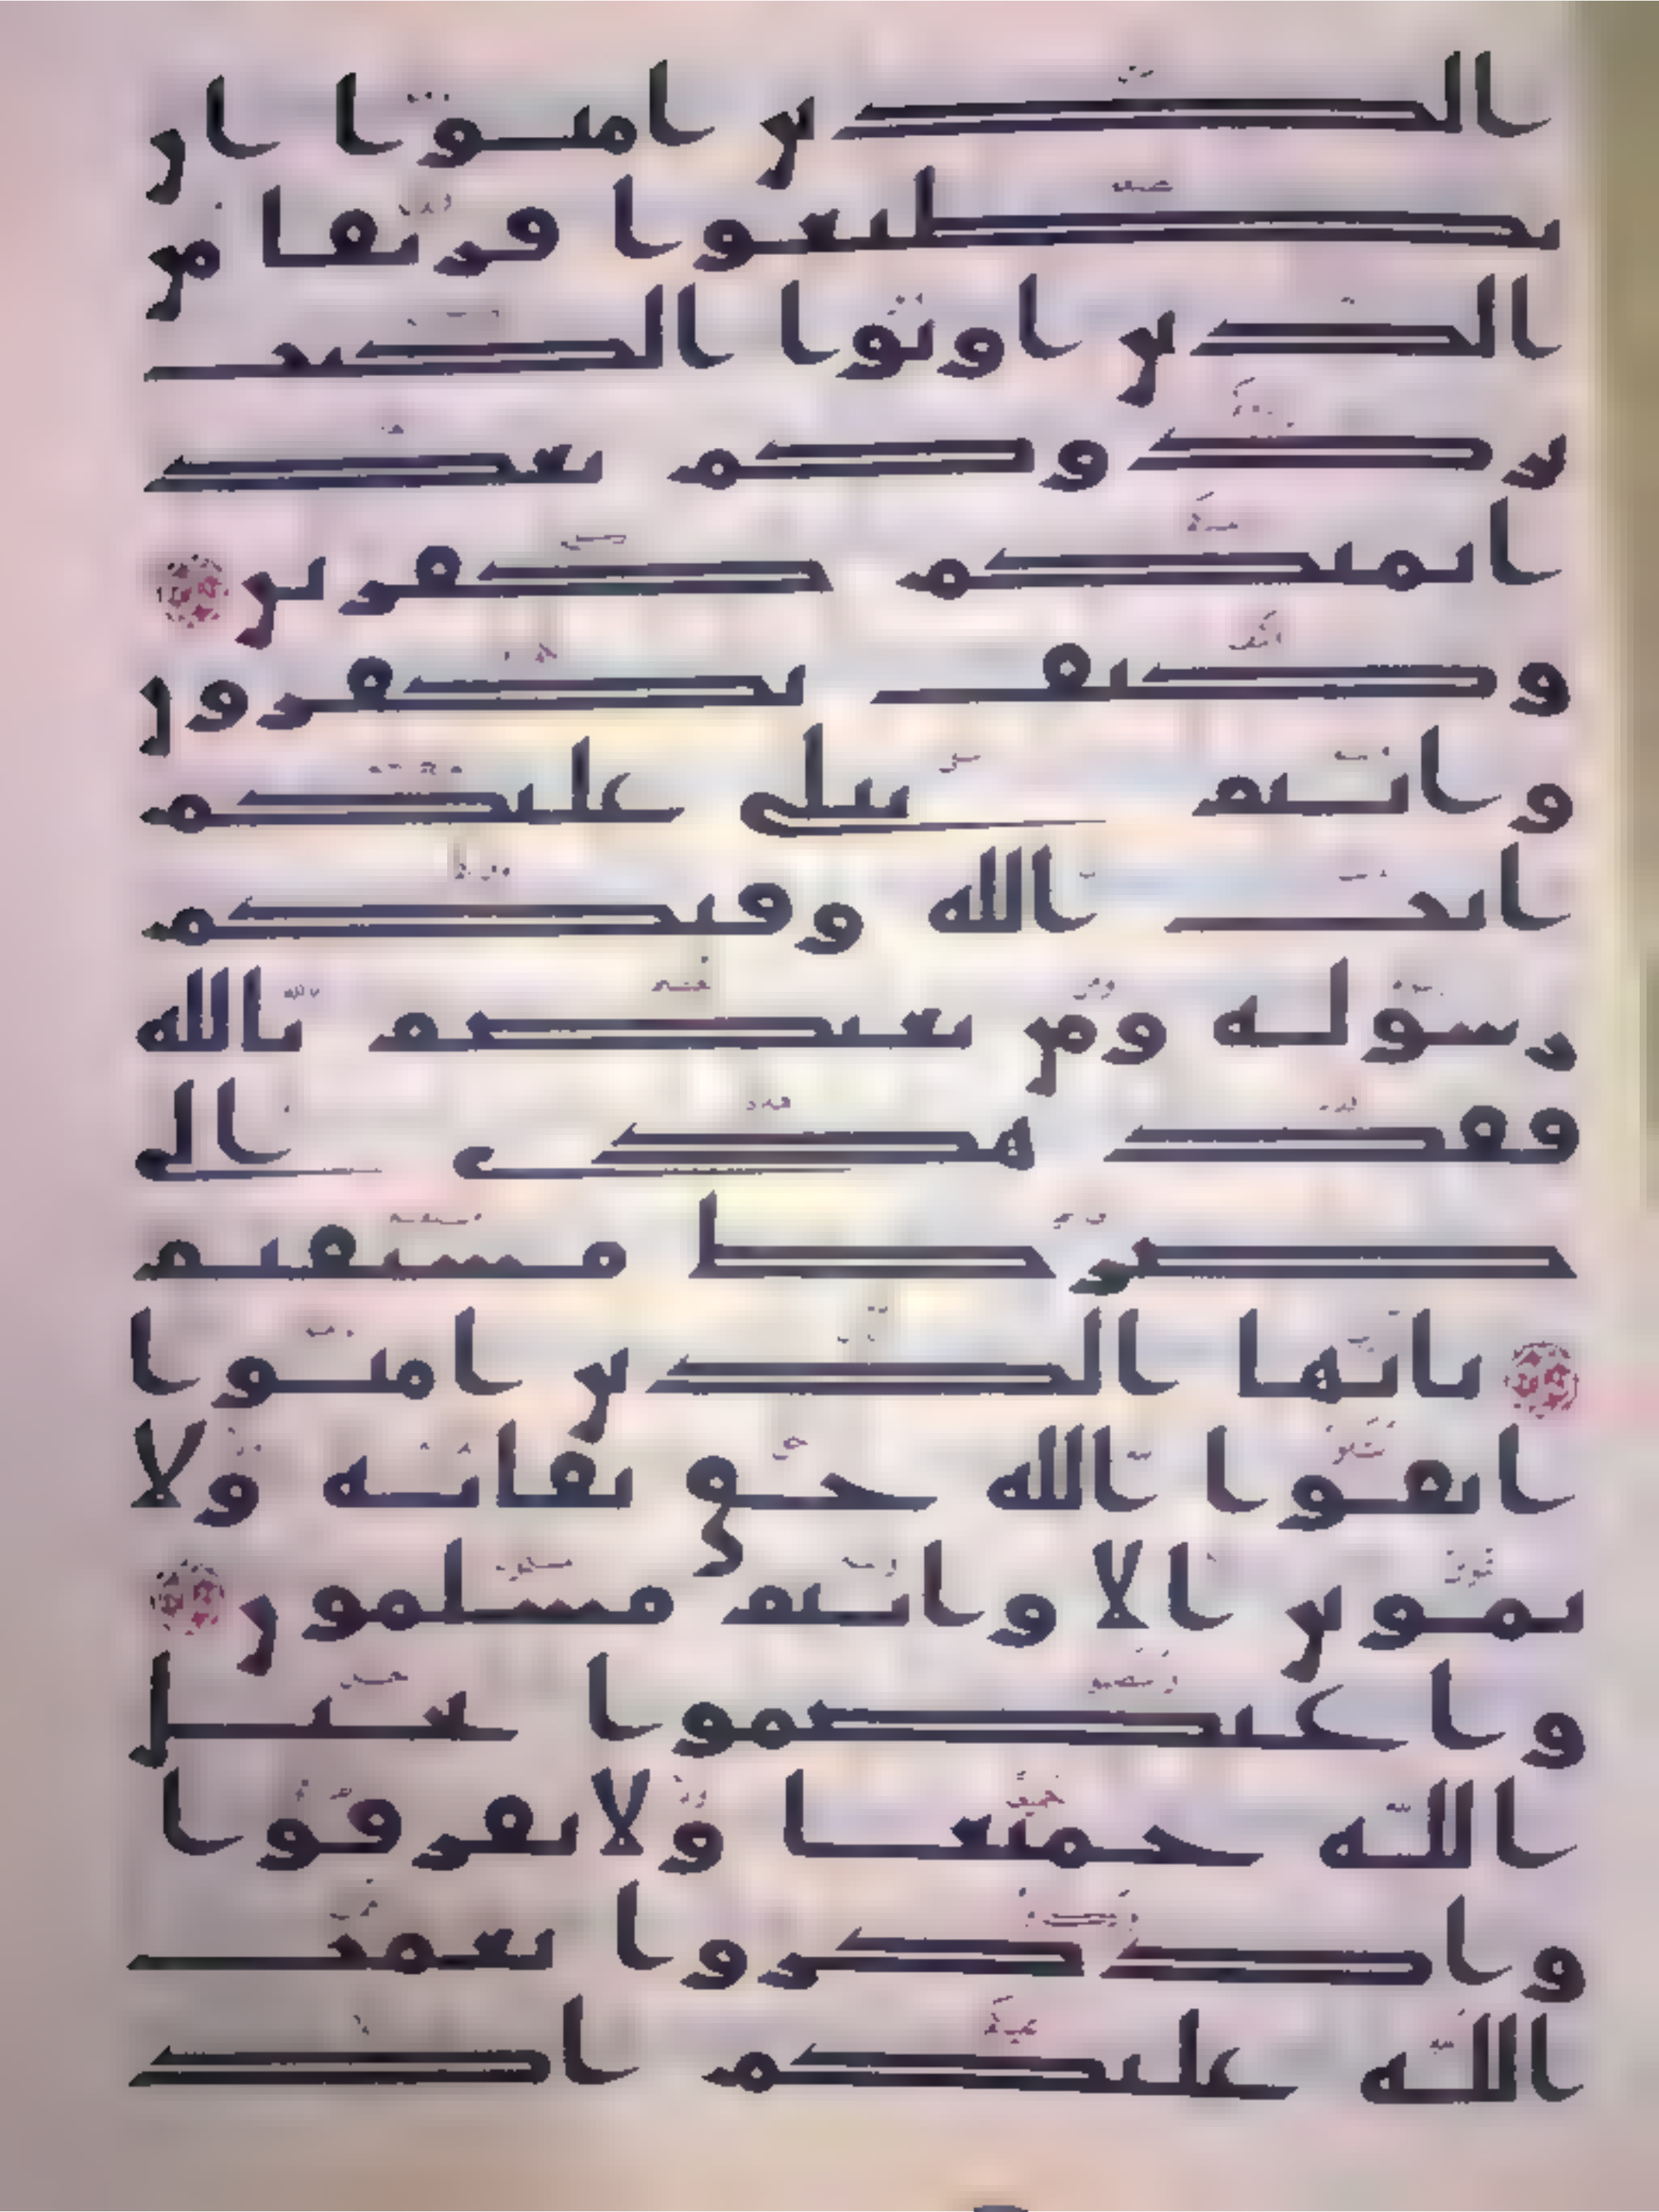 الذين امنوا ان
تطيعوا فريقا من
الذين اوتوا الكتب
يردوكم بعد
ايمنكم كفرين
وكيف تكفرون
وانتم تتلى عليكم
ايت الله وفيكم
رسوله ومن يعتصم بالله
فقد هدى الى
صرط مستقيم
يايها الذين امنوا
اتقوا الله حق تقاته ولا
تموتن الا وانتم مسلمون
واعتصموا بحبل
الله جميعا ولا تفرقوا
واذكروا نعمت
الله عليكم اذ